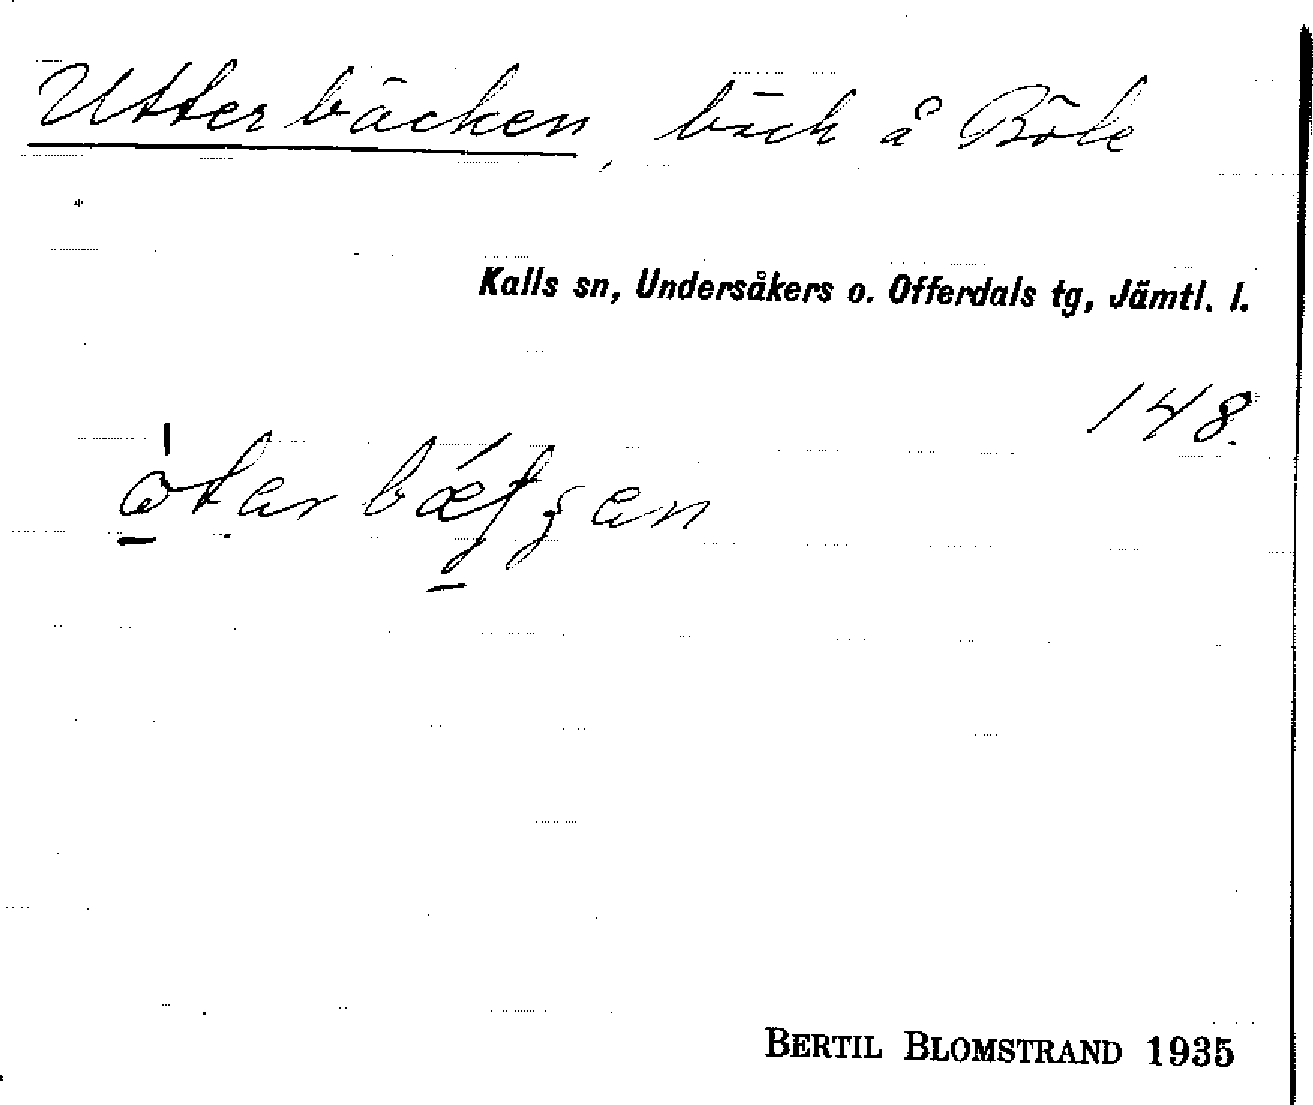 Utterbäcken, bäck å Böle
Kalls sn, Undersåkers o. Offerdals tg, Jämtl. l.
148.
BERTIL BLOMSTRAND 1935